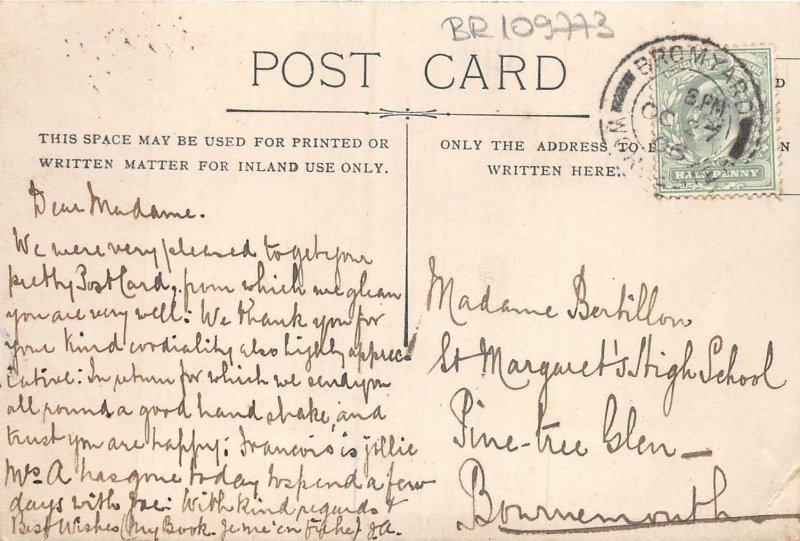 BR 109773
POST CARD
BROMYARD
8 PM
OC 27
05
HALFPENNY
THIS SPACE MAY BE USED FOR PRINTED OR
WRITTEN MATTER FOR INLAND USE ONLY.
ONLY THE ADDRESS TO
WRITTEN HERE.
Dear Madame.
We were very pleased to get your
pretty Post Card, from which we glean
you are very well: We thank you for
your kind cordiality also highly apprec-
iative: In return for which we send you
all round a good hand shake, and
trust you are happy: Francois is jollie
Mrs A has gone today to spend a few
days with Joe: With kind regards &
Best Wishes (My Book. Je me'en fiche) J.A.
Madame Bertillon
St Margaret's High School
Pine-tree Glen
Bournemouth